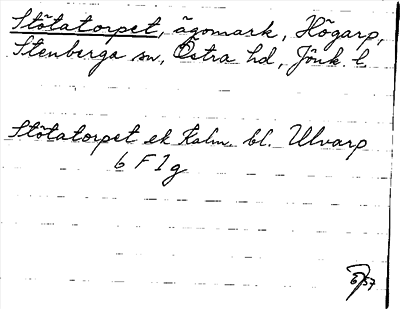 Stötatorpet, ägomark, Högarp,
Stenberga sn, Östra hd, Jönk. l
Stötatorpet ek Kalm. bl. Ulvarp
6 F 1 g
57